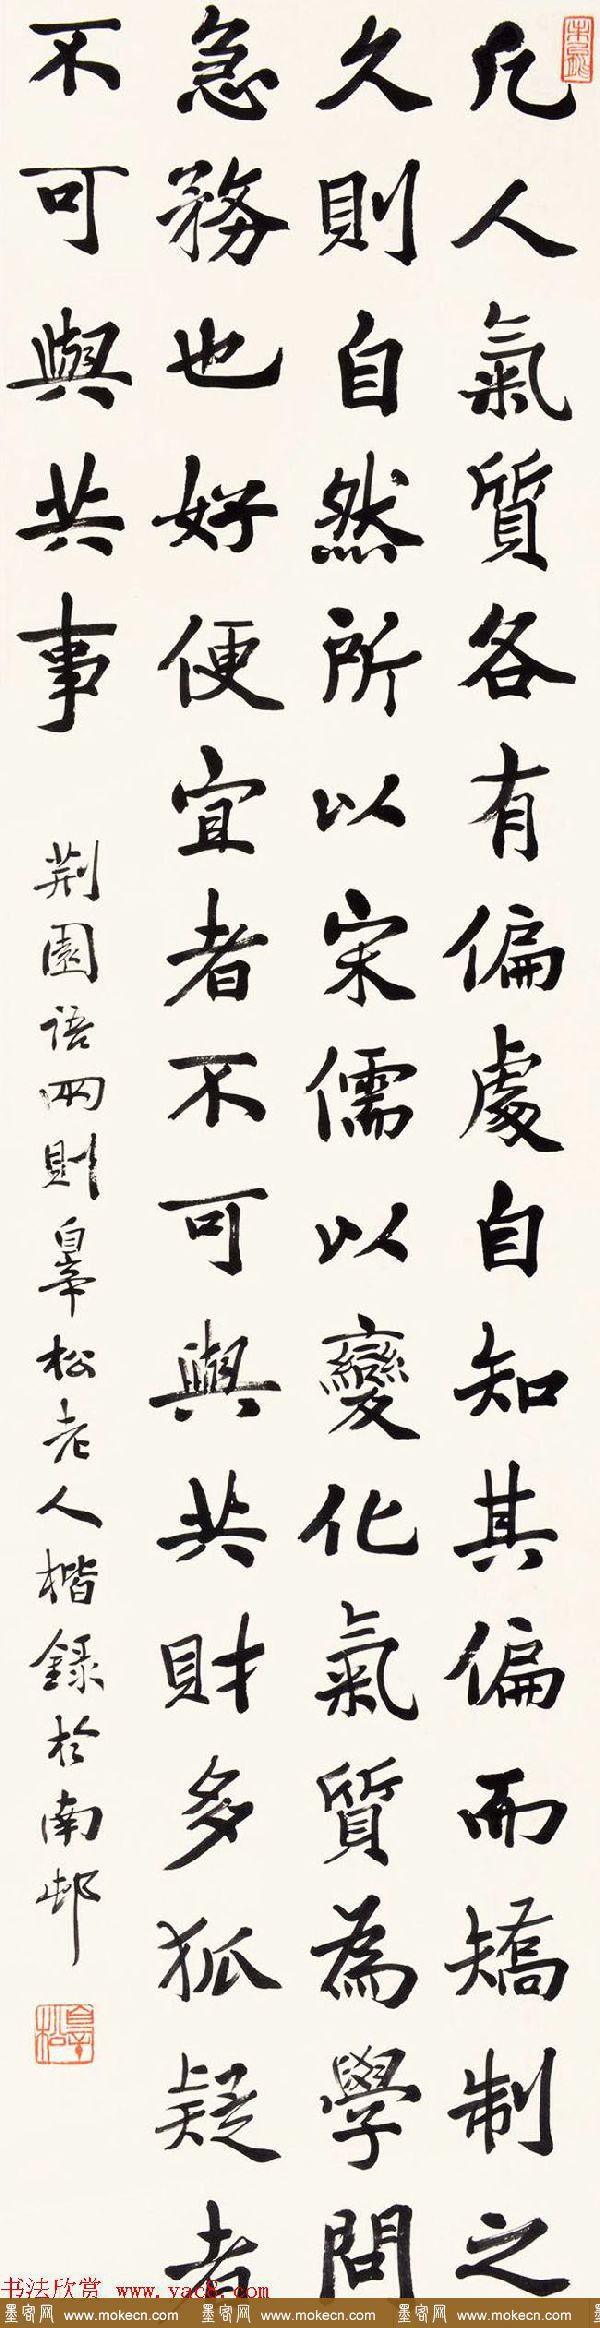 凡人氣質各有偏處自知其偏而矯制之
久則自然所以宋儒以變化氣質為學問
急務也好便宜者不可與共財多狐疑者
不可與共事
荆園語兩則皋松老人楷錄於南邨
书法欣赏 www.yac8.com
墨客网 www.mokecn.com 墨客网 www.mokecn.com 墨客网 www.mokecn.com